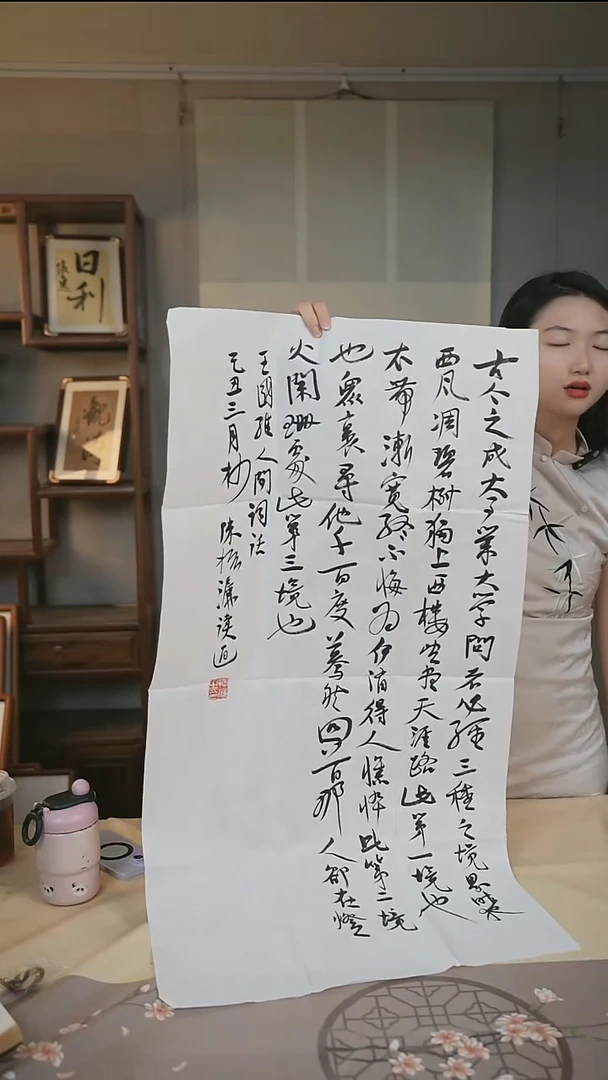 日利
古今之成大事業大學問者必經三種之境界昨
西風凋碧樹獨上西樓望盡天涯路此第一境也
衣帶漸寬終不悔為伊消得人憔悴此第二境
也眾裏尋他千百度驀然回首那人卻在燈
火闌珊處此第三境也
王國維人間詞話
丑三月杪 陳振濂